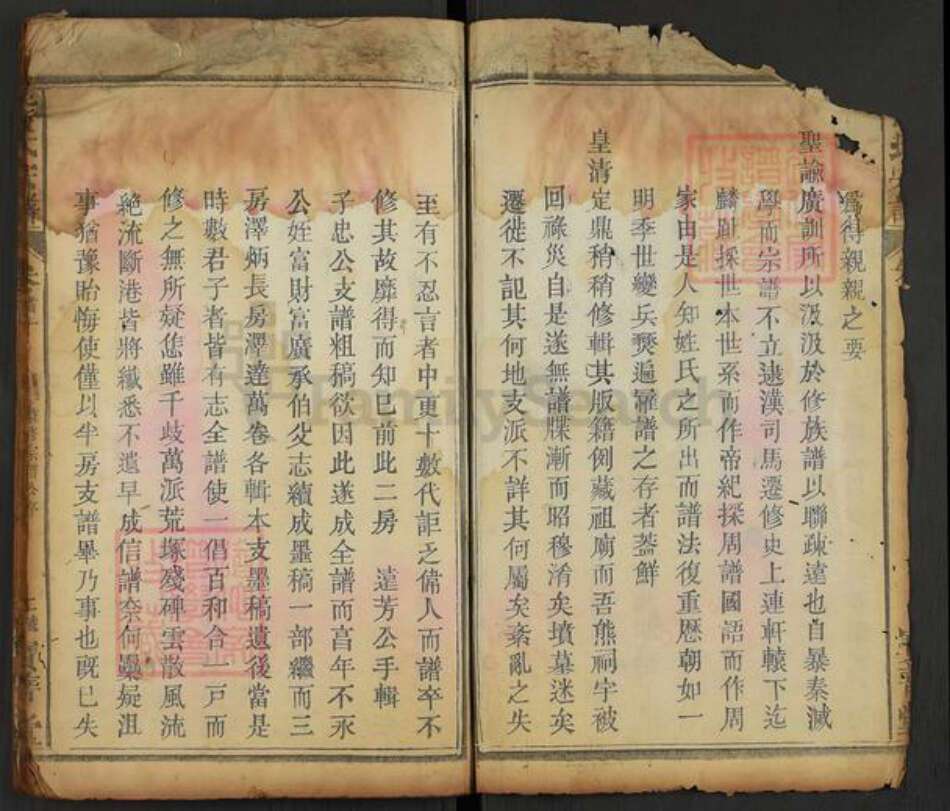 爲得親親之要
聖諭廣訓所以汲汲於修族譜以聯疎遠也自暴秦滅
學而宗譜不立逮漢司馬遷修史上連軒轅下迄
麟趾採世本世系而作帝紀探周譜國語而作周
家由是人知姓氏之所出而譜法復重歷朝如一
明季世變兵燹遍罹譜之存者蓋鮮
皇清定鼎稍稍修輯其版籍例藏祖廟而吾熊祠宇被
回祿災自是遂無譜牒漸而昭穆淆矣墳墓迷矣
遷徙不記其何地支派不詳其何屬矣紊亂之失
至有不忍言者中更十數代詎乏偹人而譜卒不
修其故靡得而知巳前此二房 達芳公手輯
子忠公支譜粗稿欲因此遂成全譜而亯年不永
公姪富財富廣承伯父志續成墨稿一部繼而三
房澤炳長房澤達萬卷各輯本支墨稿遺後當是
時數君子者皆有志全譜使一倡百和合一戸而
修之無所疑怠雖千歧萬派荒塚殘碑雲散風流
絶流斷港皆將纖悉不遺早成信譜奈何疊疑沮
事猶豫貽悔使僅以半房支譜畢乃事也旣巳失
FamilySearch